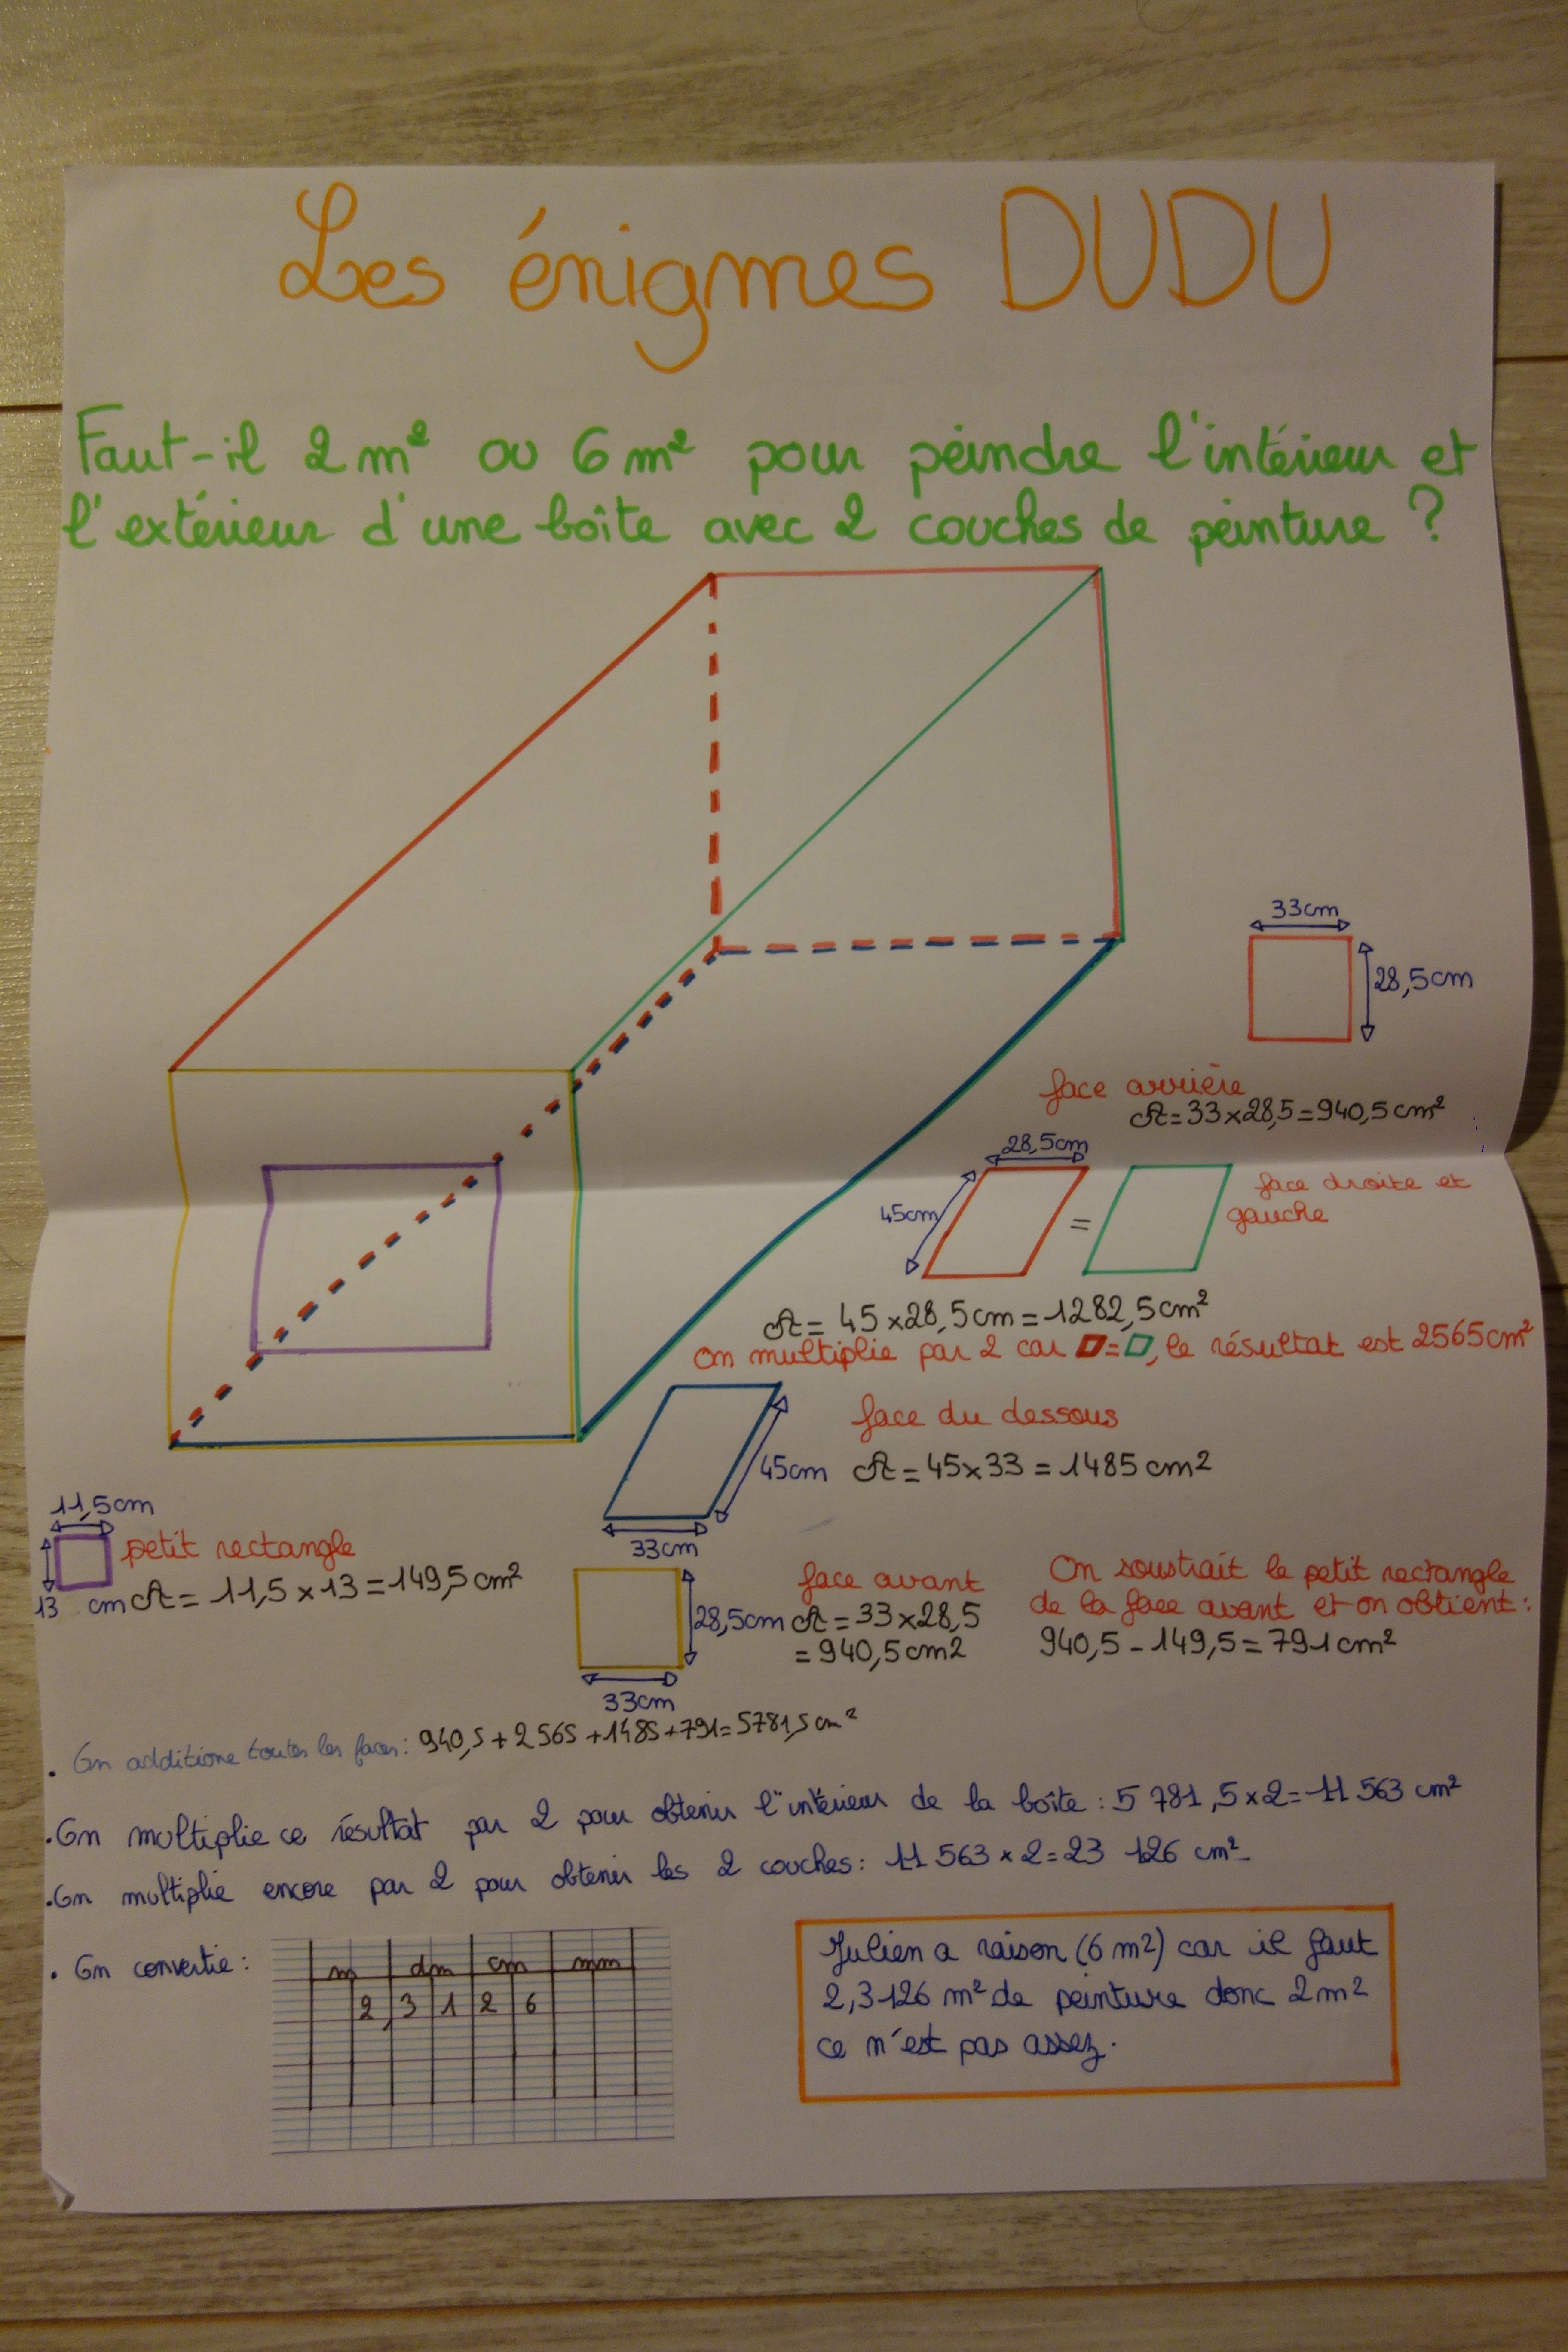 Les énigmes DUDU
Faut-il 2 m² ou 6 m² pour peindre l'intérieur et
l'extérieur d'une boîte avec 2 couches de peinture ?
33cm
28,5cm
face arrière
A = 33 x 28,5 = 940,5 cm²
28,5cm
45cm
=
face droite et
gauche
A = 45 x 28,5 cm = 1282,5 cm²
On multiplie par 2 car = , le résultat est 2565 cm²
face du dessous
45cm
A = 45 x 33 = 1485 cm²
33cm
11,5cm
petit rectangle
13 cm
A = 11,5 x 13 = 149,5 cm²
face avant
28,5cm
A = 33 x 28,5
= 940,5 cm2
33cm
On soustrait le petit rectangle
de la face avant et on obtient :
940,5 - 149,5 = 791 cm²
. On additione toutes les faces : 940,5 + 2565 + 1485 + 791 = 5781,5 cm²
. On multiplie ce résultat par 2 pour obtenir l'intérieur de la boîte : 5 781,5 x 2 = 11 563 cm²
. On multiplie encore par 2 pour obtenir les 2 couches : 11 563 x 2 = 23 126 cm²
. On convertie :
m dm cm mm
2, 3 1 2 6
Julien a raison (6 m²) car il faut
2,3126 m² de peinture donc 2 m²
ce n'est pas assez.